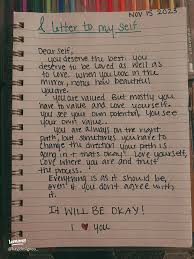 Nov 15 2023
A letter to my self
Dear self,
you deserve the best. you
deserve to be loved as well as
to love. when you look in the
mirror, notis how beautiful
you are.
You are valued. But mostly you
have to value and love yourself.
you see your own potential, you see
your own value.
You are always on the right
path, but sometimes you have to
change the direction your path is
going in & that's okay! Love yourself,
Love where you are and trust
the process.
Everything is as it should be,
even if you don't agree with
it.
IT WILL BE OKAY!
I ♥ you